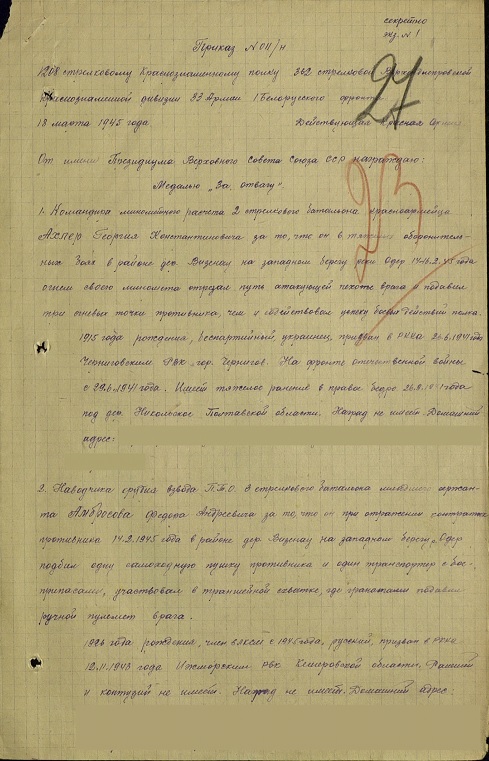 секретно
экз. №1
27
Приказ №011/н
1208 стрелковому Краснознаменному полку 362 стрелковой Верхнеднепровской
Краснознаменной дивизии 33 Армии 1 Белорусского фронта
18 марта 1945 года Действующая Красная Армия
От имени Президиума Верховного Совета Союза ССР награждаю:
Медалью „За отвагу"
1. Командира минометного расчета 2 стрелкового батальона красноармейца
Георгия Константиновича за то, что он в тяжелых оборонитель-
ных боях в районе дер. Визенау на западном берегу реки Одер 14-16.2.45 года
огнем своего миномета отрезал путь атакующей пехоте врага и подавил
три огневые точки противника, чем и содействовал успеху боевых действий полка.
1915 года рождения, беспартийный, украинец, призван в РККА 26.6.1941 года
Черниговским РВК гор. Чернигов. На фронте отечественной войны
с 29.6.1941 года. Имеет тяжелое ранение в правое бедро 26.8.1941 года
под дер. Никольское Полтавской области. Наград не имеет. Домашний
адрес:
2. Наводчика орудия взвода П.Т.О. 3 стрелкового батальона младшего сержан-
та Амбросова Федора Андреевича за то, что он при отражении контратак
противника 14.2.1945 года в районе дер. Визенау на западном берегу р. Одер
подбил одну самоходную пушку противника и один транспортер с бое-
припасами, участвовал в траншейной схватке, где гранатами подавил
ручной пулемет врага.
1926 года рождения, член ВЛКСМ с 1945 года, русский, призван в РККА
12.11.1943 года Ижморским РВК Кемеровской области. Ранений
и контузий не имеет. Наград не имеет. Домашний адрес: